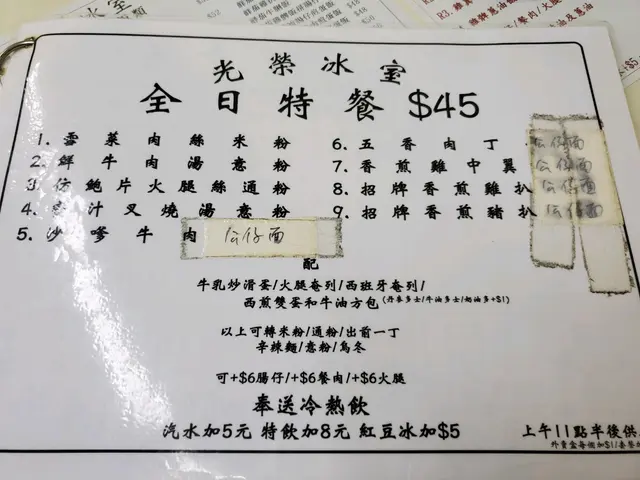 光榮冰室
全日特餐 $45
1. 雪菜肉絲米粉
2. 鮮牛肉湯意粉
3. 仿鮑片火腿絲通粉
4. 汁叉燒湯意粉
5. 沙嗲牛肉 公仔面
6. 五香肉丁 公仔面
7. 香煎雞中翼 公仔面
8. 招牌香煎雞扒 公仔面
9. 招牌香煎豬扒 公仔面
配
牛乳炒滑蛋/火腿奄列/西班牙奄列/
西煎雙蛋和牛油方包 (丹麥多士/牛油多士/奶油多+$1)
以上可轉米粉/通粉/出前一丁
辛辣麵/意粉/烏冬
可+$6腸仔/+$6餐肉/+$6火腿
奉送冷熱飲
汽水加5元 特飲加8元 紅豆冰加$5
上午11點半後供
外賣盒每個加$1